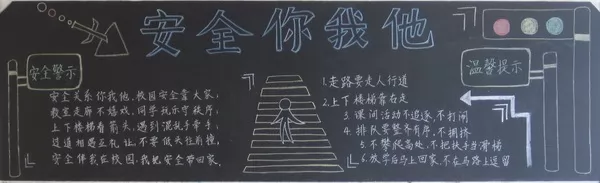 安全你我他
安全警示
安全关系你我他，校园安全靠大家，
教室走廊不嬉戏，同学玩乐守秩序，
上下楼梯看箭头，遇到混乱手牵手，
过道相遇互礼让，不要低头往前撞，
安全伴我在校园，我把安全带回家，
温馨提示
1.走路要走人行道
2.上下楼梯靠右走
3.课间活动不追逐，不打闹
4.排队要整齐有序，不拥挤
5.不攀爬高处，不把扶手当滑梯
6.放学后马上回家，不在马路上逗留